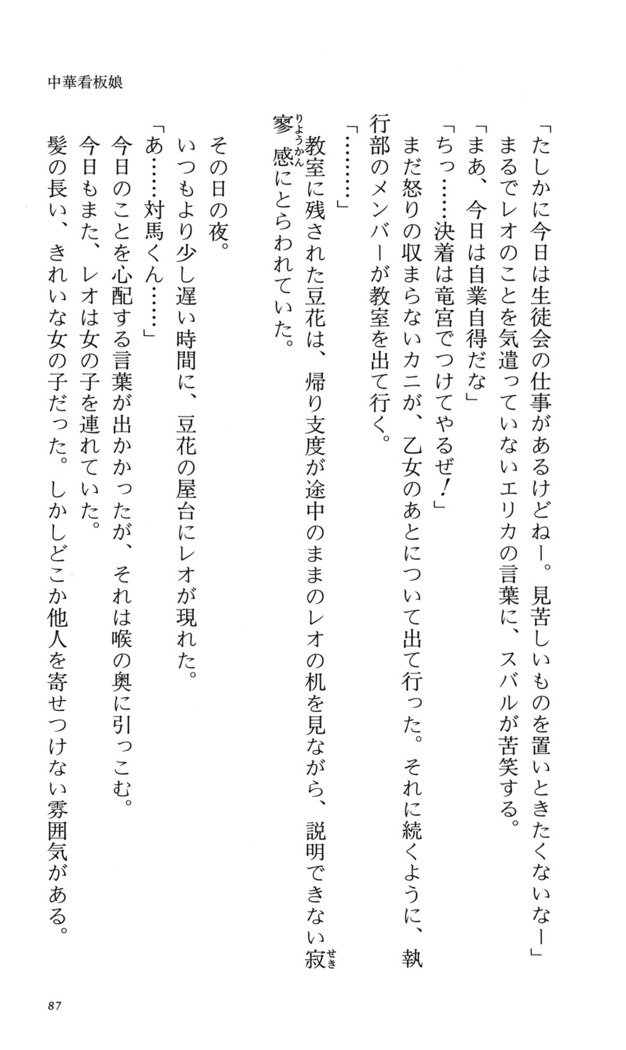 中華看板娘
「たしかに今日は生徒会の仕事があるけどねー。見苦しいものを置いときたくないなー」
まるでレオのことを気遣っていないエリカの言葉に、スバルが苦笑する。
「まあ、今日は自業自得だな」
「ちっ……決着は竜宮でつけてやるぜ!」
まだ怒りの収まらないカニが、乙女のあとについて出て行った。それに続くように、執
行部のメンバーが教室を出て行く。
「………」
教室に残された豆花は、帰り支度が途中のままのレオの机を見ながら、説明できない寂
寥感にとらわれていた。
その日の夜。
いつもより少し遅い時間に、豆花の屋台にレオが現れた。
「あ……対馬くん……」
今日のことを心配する言葉が出かかったが、それは喉の奥に引っこむ。
今日もまた、レオは女の子を連れていた。
髪の長い、きれいな女の子だった。しかしどこか他人を寄せつけない雰囲気がある。
87